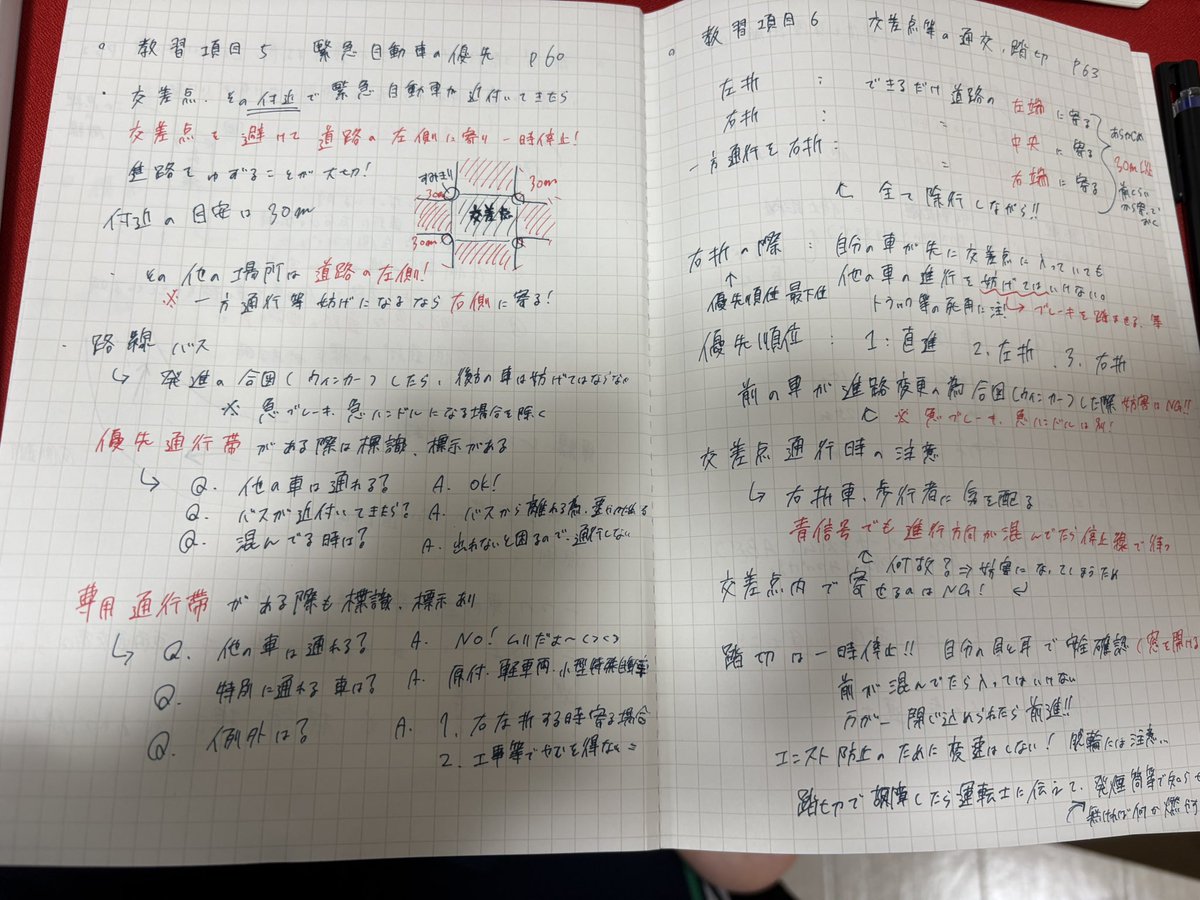 教習項目5 緊急自動車の優先 p60
・交差点、その付近で緊急自動車が近付いてきたら
交差点を避けて道路の左側に寄り一時停止!
進路をゆずることが大切!
付近の目安は30m
すみきり
30m
30m
交差点
30m
・その他の場所は道路の左側!
※一方通行等妨げになるなら右側に寄る!
・路線バス
↳ 発進の合図(ウィンカー)したら、後方の車は妨げてはならない
※ 急ブレーキ、急ハンドルになる場合を除く
優先通行帯がある際は標識、標示がある
↳ Q. 他の車は通れる? A. OK!
Q. バスが近付いてきたら? A. バスから離れる為、
Q. 混んでる時は? A. 出れないと困るので、通行しない
専用通行帯がある際も標識、標示あり
↳ Q. 他の車は通れる? A. NO! ムリだよ〜(><)
Q. 特別に通れる車は? A. 原付、軽車両、小型特殊自動車
Q. 例外は? A. 1. 右左折する時寄る場合
2. 工事等でやむを得ない
教習項目6 交差点等の通交、踏切 p63
左折 : できるだけ道路の左端に寄る
右折 : 〃 中央に寄る
一方通行を右折: 〃 右端に寄る
あらかじめ
30m以上
前くらい
から寄って
おく
↖ 全て除行しながら!!
右折の際 : 自分の車が先に交差点に入っていても
他の車の進行を妨げてはいけない。
↑
優先順位 最下位
トラック等の死角に注! → ブレーキを踏ませる、等
優先順位 : 1:直進 2.左折 3.右折
前の車が進路変更の為合図(ウィンカー)した際妨害はNG!!
↖ ※ 急ブレーキ、急ハンドルは別!
交差点通行時の注意
↳ 右折車、歩行者に気を配る
青信号でも進行方向が混んでたら停止線で待つ
↖ 何故? ⇒ 妨害になってしまうため
交差点内で寄せるのはNG!
踏切は一時停止!! 自分の目と耳で安全確認(窓を開ける
前が混んでたら入ってはいけない
万が一閉じ込められたら前進!!
エンスト防止のために変速はしない! 脱輪には注意..
踏切で故障したら運転士に伝えて、発煙筒等で知らせ
↗ 無ければ何か燃やす